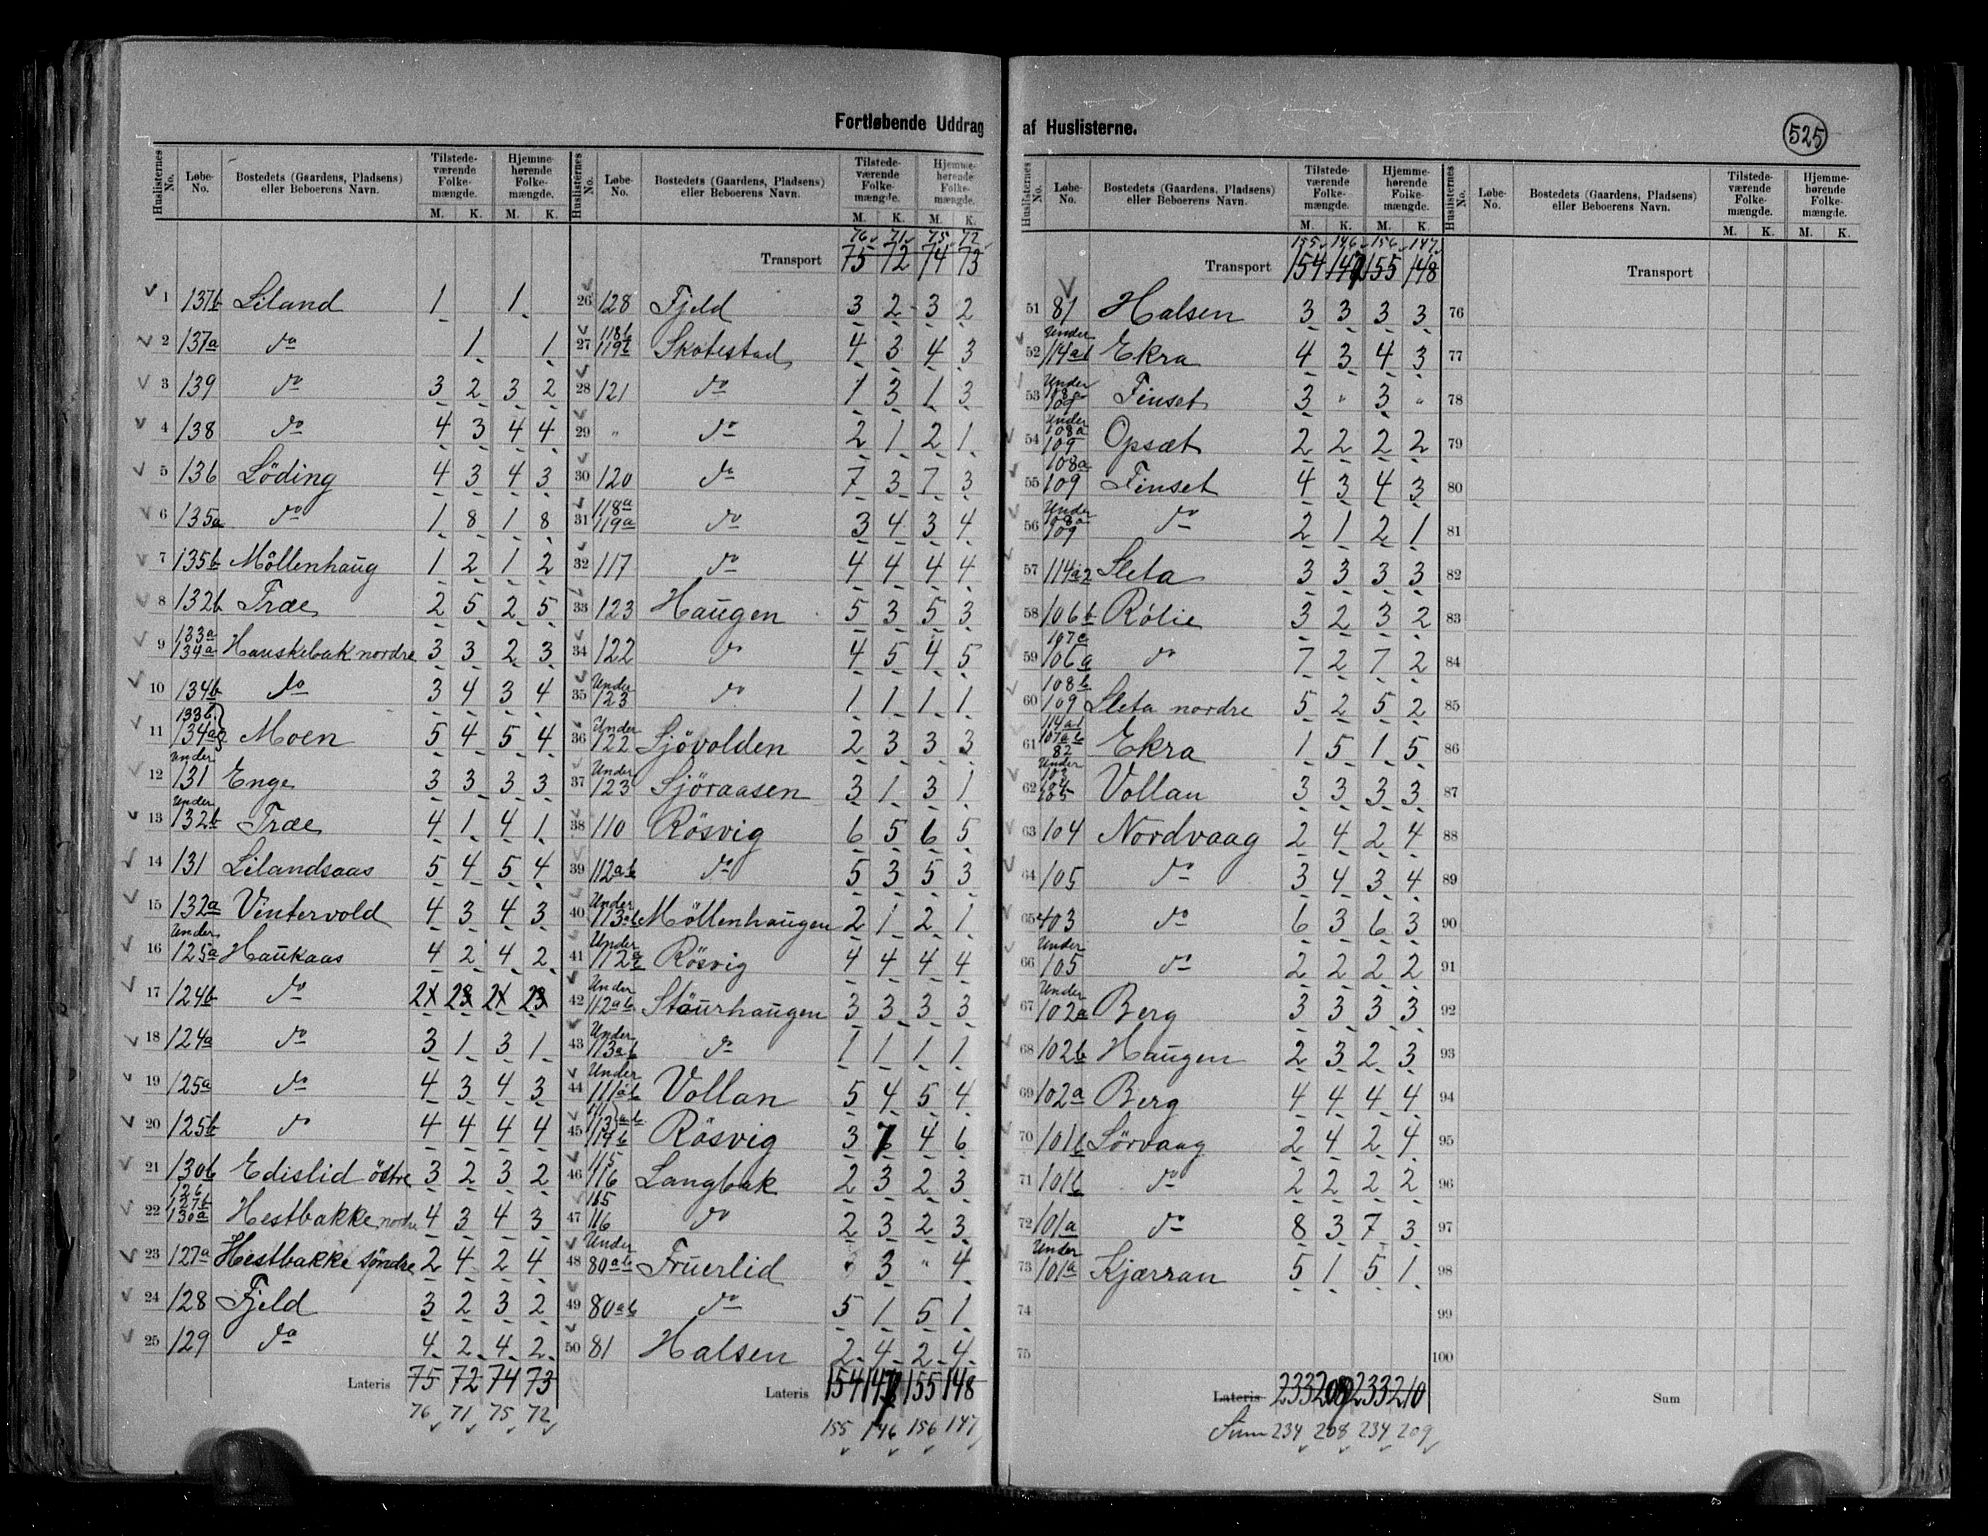 Fortløbende Uddrag af Huslisterne.
525
Huslisternes No. Løbe-No. Bostedets (Gaardens, Pladsens) eller Beboerens Navn. Tilstedeværende Folkemængde. M. K. Hjemmehørende Folkemængde. M. K.
1 137b Liland 1 1
2 137a do 1 1
3 139 do 3 2 3 2
4 138 do 4 3 4 4
5 136 Löding 4 3 4 3
6 135a do 1 8 1 8
7 135b Möllenhaug 1 2 1 2
8 132b Træe 2 5 2 5
9 133a 134a Hauskebak nordre 3 3 2 3
10 134b do 3 4 3 4
11 133b 134a2 Moen 5 4 5 4
12 Under 131 Enge 3 3 3 3
13 Under 132b Træe 4 1 4 1
14 131 Lilandsaas 5 4 5 4
15 132a Vintervold 4 3 4 3
16 Under 125a Haukaas 4 2 4 2
17 124b do
18 124a do 3 1 3 1
19 125a do 4 3 4 3
20 125b do 4 4 4 4
21 130b Edislid östre 3 2 3 2
22 126 127b 130a Hestbakke nordre 4 3 4 3
23 127a Hestbakke søndre 2 4 2 4
24 128 Fjeld 3 2 3 2
25 129 do 4 2 4 2
Lateris 75 72 74 73
76 71 75 72
Huslisternes No. Løbe-No. Bostedets (Gaardens, Pladsens) eller Beboerens Navn. Tilstedeværende Folkemængde. M. K. Hjemmehørende Folkemængde. M. K.
76 71 75 72
Transport 75 72 74 73
26 128 Fjeld 3 2 3 2
27 118b 119b Skotestad 4 3 4 3
28 121 do 1 3 1 3
29 " do 2 1 2 1
30 120 do 7 3 7 3
31 118a 119a do 3 4 3 4
32 117 do 4 4 4 4
33 123 Haugen 5 3 5 3
34 122 do 4 5 4 5
35 Under 123 do 1 1 1 1
36 Under 122 Sjövolden 2 3 3 3
37 Under 123 Sjöraasen 3 1 3 1
38 110 Rösvig 6 5 6 5
39 112ab do 5 3 5 3
40 Under 113ab Möllenhaugen 2 1 2 1
41 Under 112a Rösvig 4 4 4 4
42 Under 112ab Staurhaugen 3 3 3 3
43 Under 113ab do 1 1 1 1
44 Under 111ab Vollan 5 4 5 4
45 111 113 ab 114b Rösvig 3 7 4 6
46 115 116 Langbak 2 3 2 3
47 115 116 do 2 3 2 3
48 Under 80ab Fruerlid " 3 " 4
49 80ab do 5 1 5 1
50 81 Halsen 2 4 2 4
Lateris 154 147 155 148
155 146 156 147
Huslisternes No. Løbe-No. Bostedets (Gaardens, Pladsens) eller Beboerens Navn. Tilstedeværende Folkemængde. M. K. Hjemmehørende Folkemængde. M. K.
155 146 156 147
Transport 154 147 155 148
51 81 Halsen 3 3 3 3
52 Under 114a1 Ekra 4 3 4 3
53 Under 108a 109 Finset 3 " 3 "
54 Under 108a 109 Opsæt 2 2 2 2
55 108a 109 Finset 4 3 4 3
56 Under 108a 109 do 2 1 2 1
57 114a2 Sleta 3 3 3 3
58 106b Rölie 3 2 3 2
59 107a 106a do 7 2 7 2
60 108b 109 Sleta nordre 5 2 5 2
61 114a1 107ab 82 Ekra 1 5 1 5
62 Under 103 104 105 Vollan 3 3 3 3
63 104 Nordvaag 2 4 2 4
64 105 do 3 4 3 4
65 103 do 6 3 6 3
66 Under 105 do 2 2 2 2
67 Under 102a Berg 3 3 3 3
68 102b Haugen 2 3 2 3
69 102a Berg 4 4 4 4
70 101b Sörvaag 2 4 2 4
71 101b do 2 2 2 2
72 101a do 8 3 7 3
73 Under 101a Kjærran 5 1 5 1
74
75
Lateris 233 209 233 210
Sum 234 208 234 209
Huslisternes No. Løbe-No. Bostedets (Gaardens, Pladsens) eller Beboerens Navn. Tilstedeværende Folkemængde. M. K. Hjemmehørende Folkemængde. M. K.
Transport
76
77
78
79
80
81
82
83
84
85
86
87
88
89
90
91
92
93
94
95
96
97
98
99
100
Sum